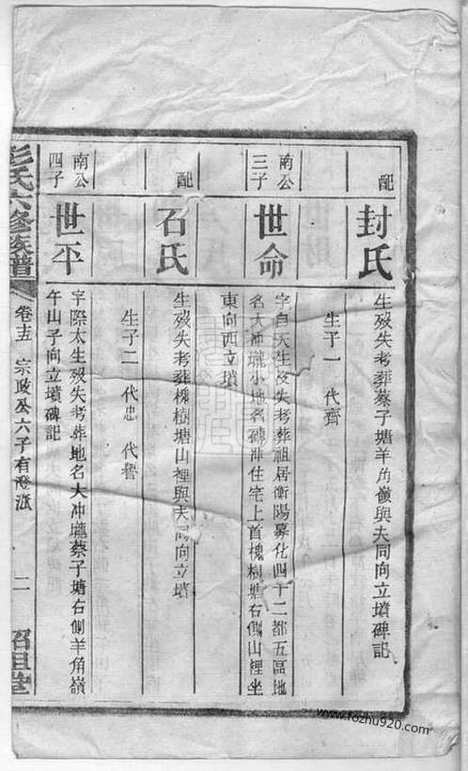 配
封氏
生歿失考葬蔡子塘羊角嶺與夫同向立墳碑記
生子一 代齊
南公三子
世命
字自天生歿失考葬祖居衡陽慕化四十二都五區地
名大冲壠小地名磚冲住宅上首槐樹塘右側山裡坐
東向西立墳
配
石氏
生歿失考葬槐樹塘山裡與夫同向立墳
生子二 代忠 代魯
南公四子
世平
字際太生歿失考葬地名大冲壠蔡子塘右側羊角嶺
午山子向立墳碑記
彭氏六修族譜
卷十五 宗政公六子有
二
紹組堂
www.fozhu920.com